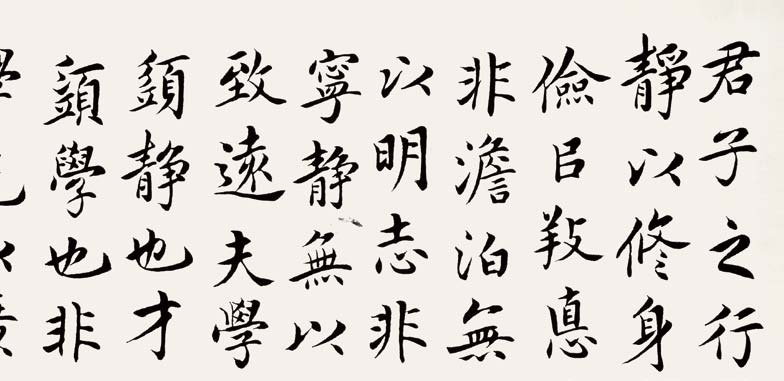 君子之行
靜以修身
儉㠯𢼝悳
非澹泊無
以明志非
寧静無以
致遠夫學
須静也才
須學也非